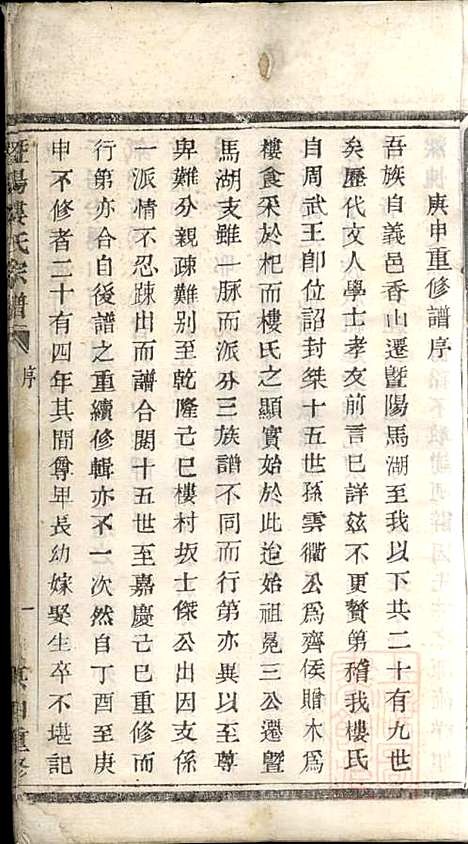 庚申重修譜序
吾族自義邑香山遷暨陽馬湖至我以下共二十有九世
矣歷代文人學士孝友前言已詳玆不更贅第稽我樓氏
自周武王卽位詔封桀十五世孫雲衢公爲齊侯贈木爲
樓食釆於杞而樓氏之顯實始於此迨始祖冕三公遷暨
馬湖支雖一脈而派分三族譜不同而行第亦異以至尊
卑難分親疎難別至乾隆己巳樓村坂士傑公出因支係
一派情不忍疎出而譜合閱十五世至嘉慶己巳重修而
行第亦合自後譜之重續修輯亦不一次然自丁酉至庚
申不修者二十有四年其間尊卑長幼嫁娶生卒不堪記
暨陽樓氏宗譜
序
一